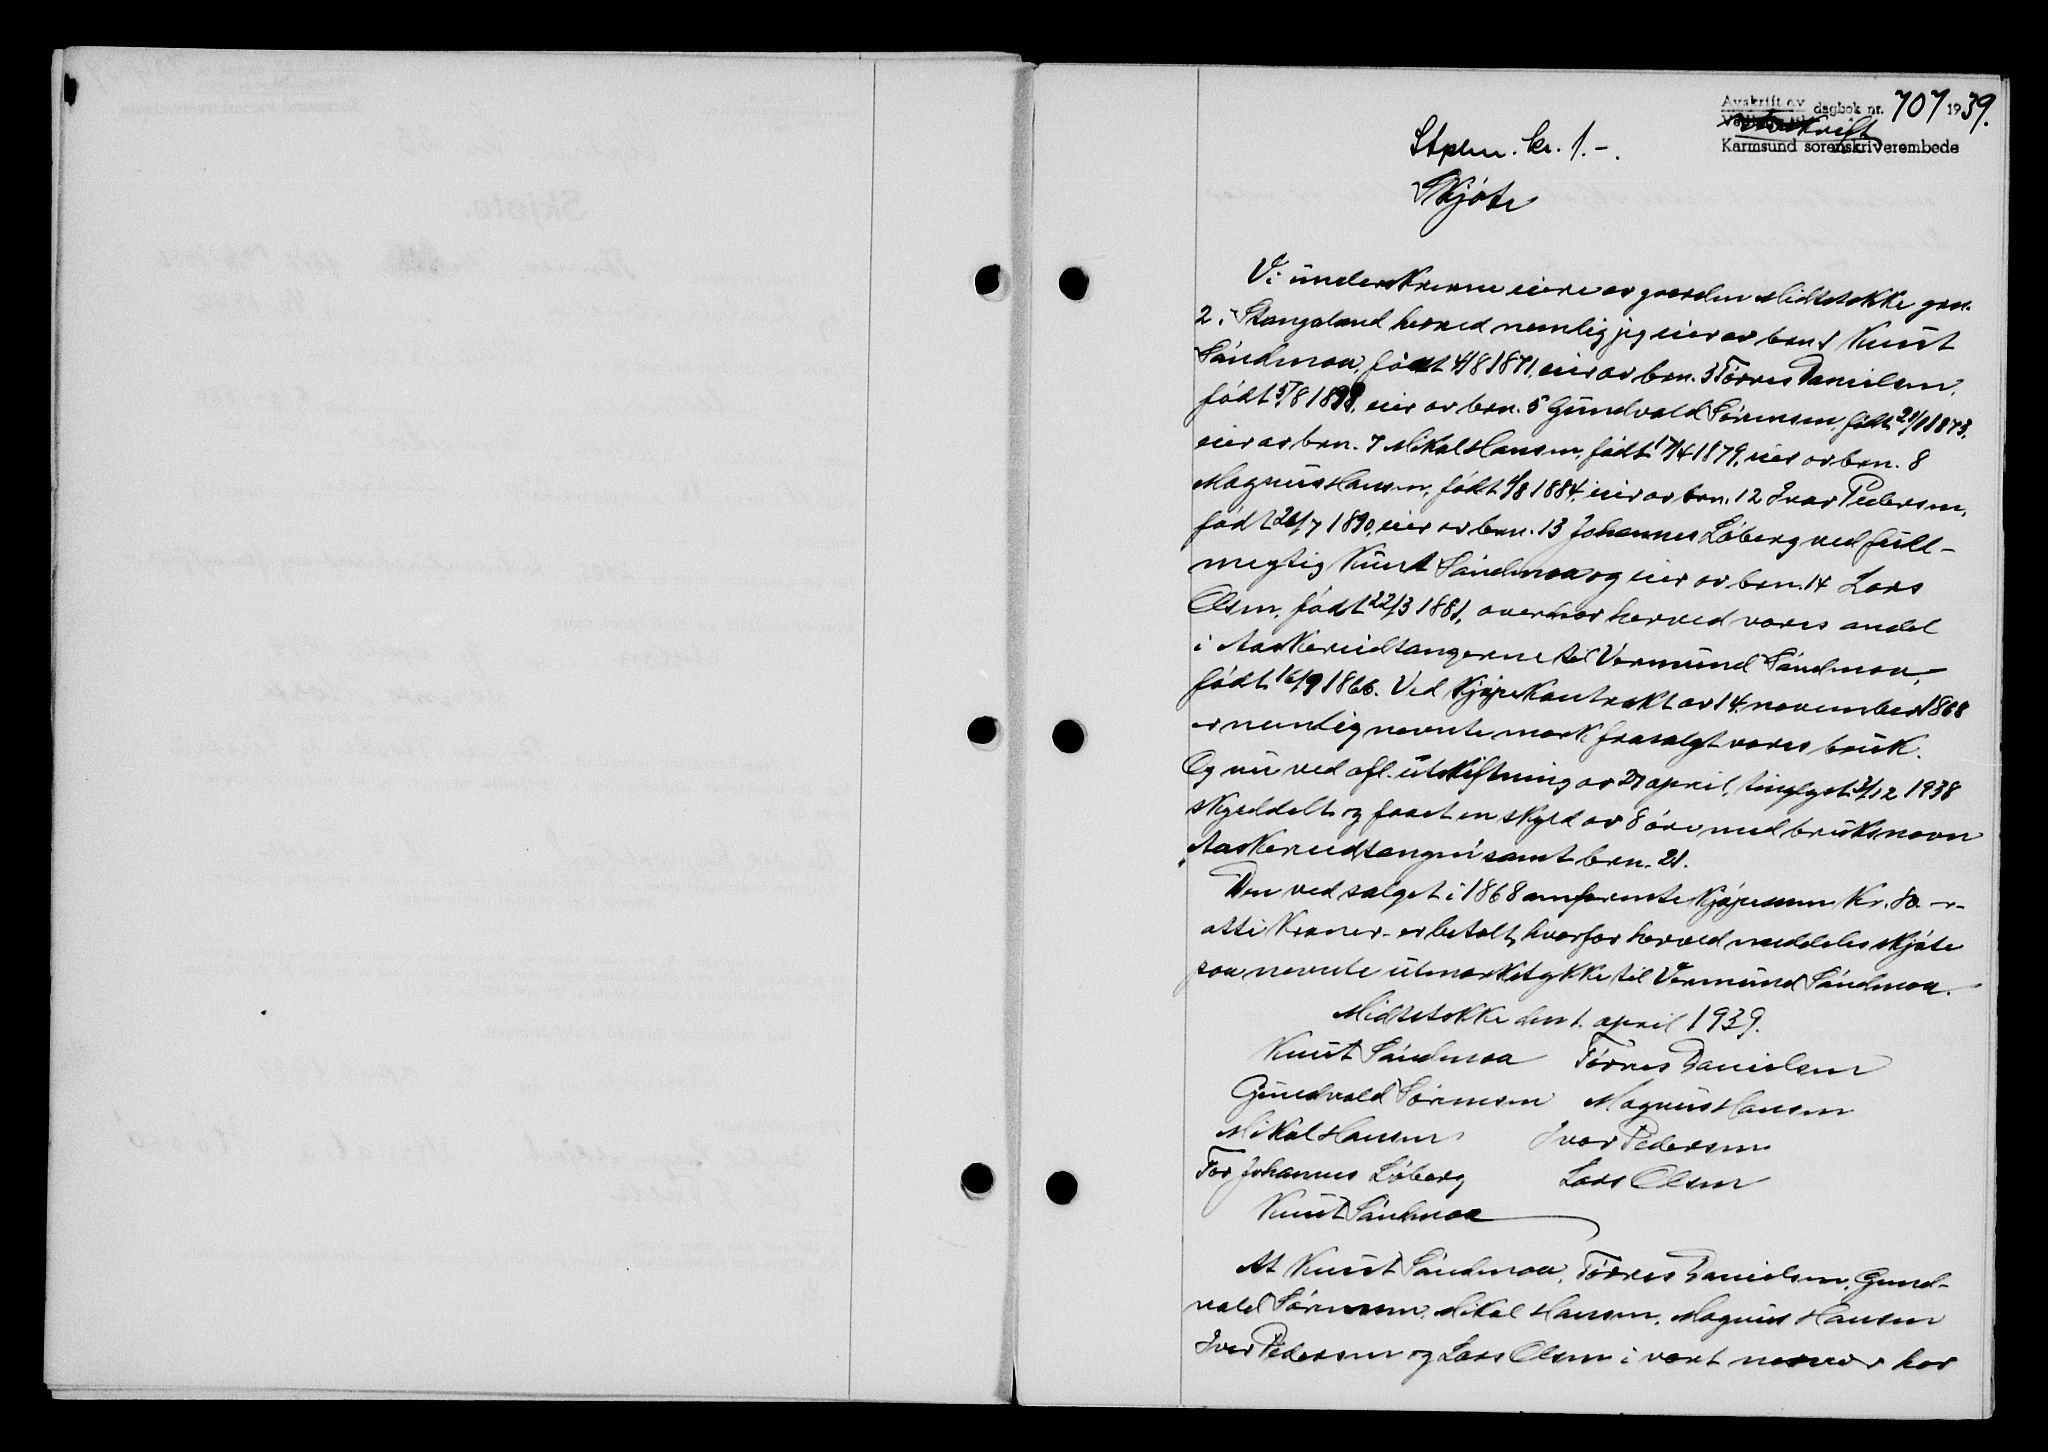 Avskrift av dagbok nr. 707 1939.
Karmsund sorenskriverembede
Stplm. kr. 1.-.
Skjøte
Vi underskrevne eiere av gaarden Midtstokke gnr.
2 i Stangaland herred nemlig jeg eier av brn. 1 Knut
Sándmoa, født 4/8 1871, eier av brn. 3 Tørres Danielsen,
født 5/8 1898, eier av brn. 5 Gundvald Sørensen, født 21/1 1873,
eier av brn. 7 Mikal Hansen, født 17/4 1879, eier av brn. 8
Magnus Hansen, født 1/8 1884, eier av brn. 12 Ivar Pedersen,
født 26/7 1890, eier av brn. 13 Johannes Løberg ved full-
megtig Knut Sándmoa og eier av brn. 14 Lars
Olsen, født 22/3 1881, overdrar herved vores andel
i Aaskereidtangerne til Vermund Sándmoa,
født 16/9 1866. Ved Kjøpekontrakt av 14. november 1868
er nemlig nevnte mark frasalgt vores bruk.
Og nu ved ofl. utskiftning av 27 april, tinglyst 2/12 1938
skylddelt og faaet en skyld av 8 øre med bruksnavn
Aaskereidtangen samt brn. 21.
Den ved salget i 1868 omforente Kjøpesum Kr. 80.-
otti Kroner - er betalt, hvorfor herved meddeles skjøte
paa nevnte utmarkstykke til Vermund Sándmoa.
Midtstokke den 1. april 1939.
Knut Sándmoa Tørres Danielsen
Gundvald Sørensen Magnus Hansen
Mikal Hansen Ivar Pedersen
For Johannes Løberg Lars Olsen
Knut Sándmoa
At Knut Sándmoa, Tørres Danielsen, Gund-
vald Sørensen, Mikal Hansen, Magnus Hansen
Iver Pedersen og Lars Olsen i vort nærvær har